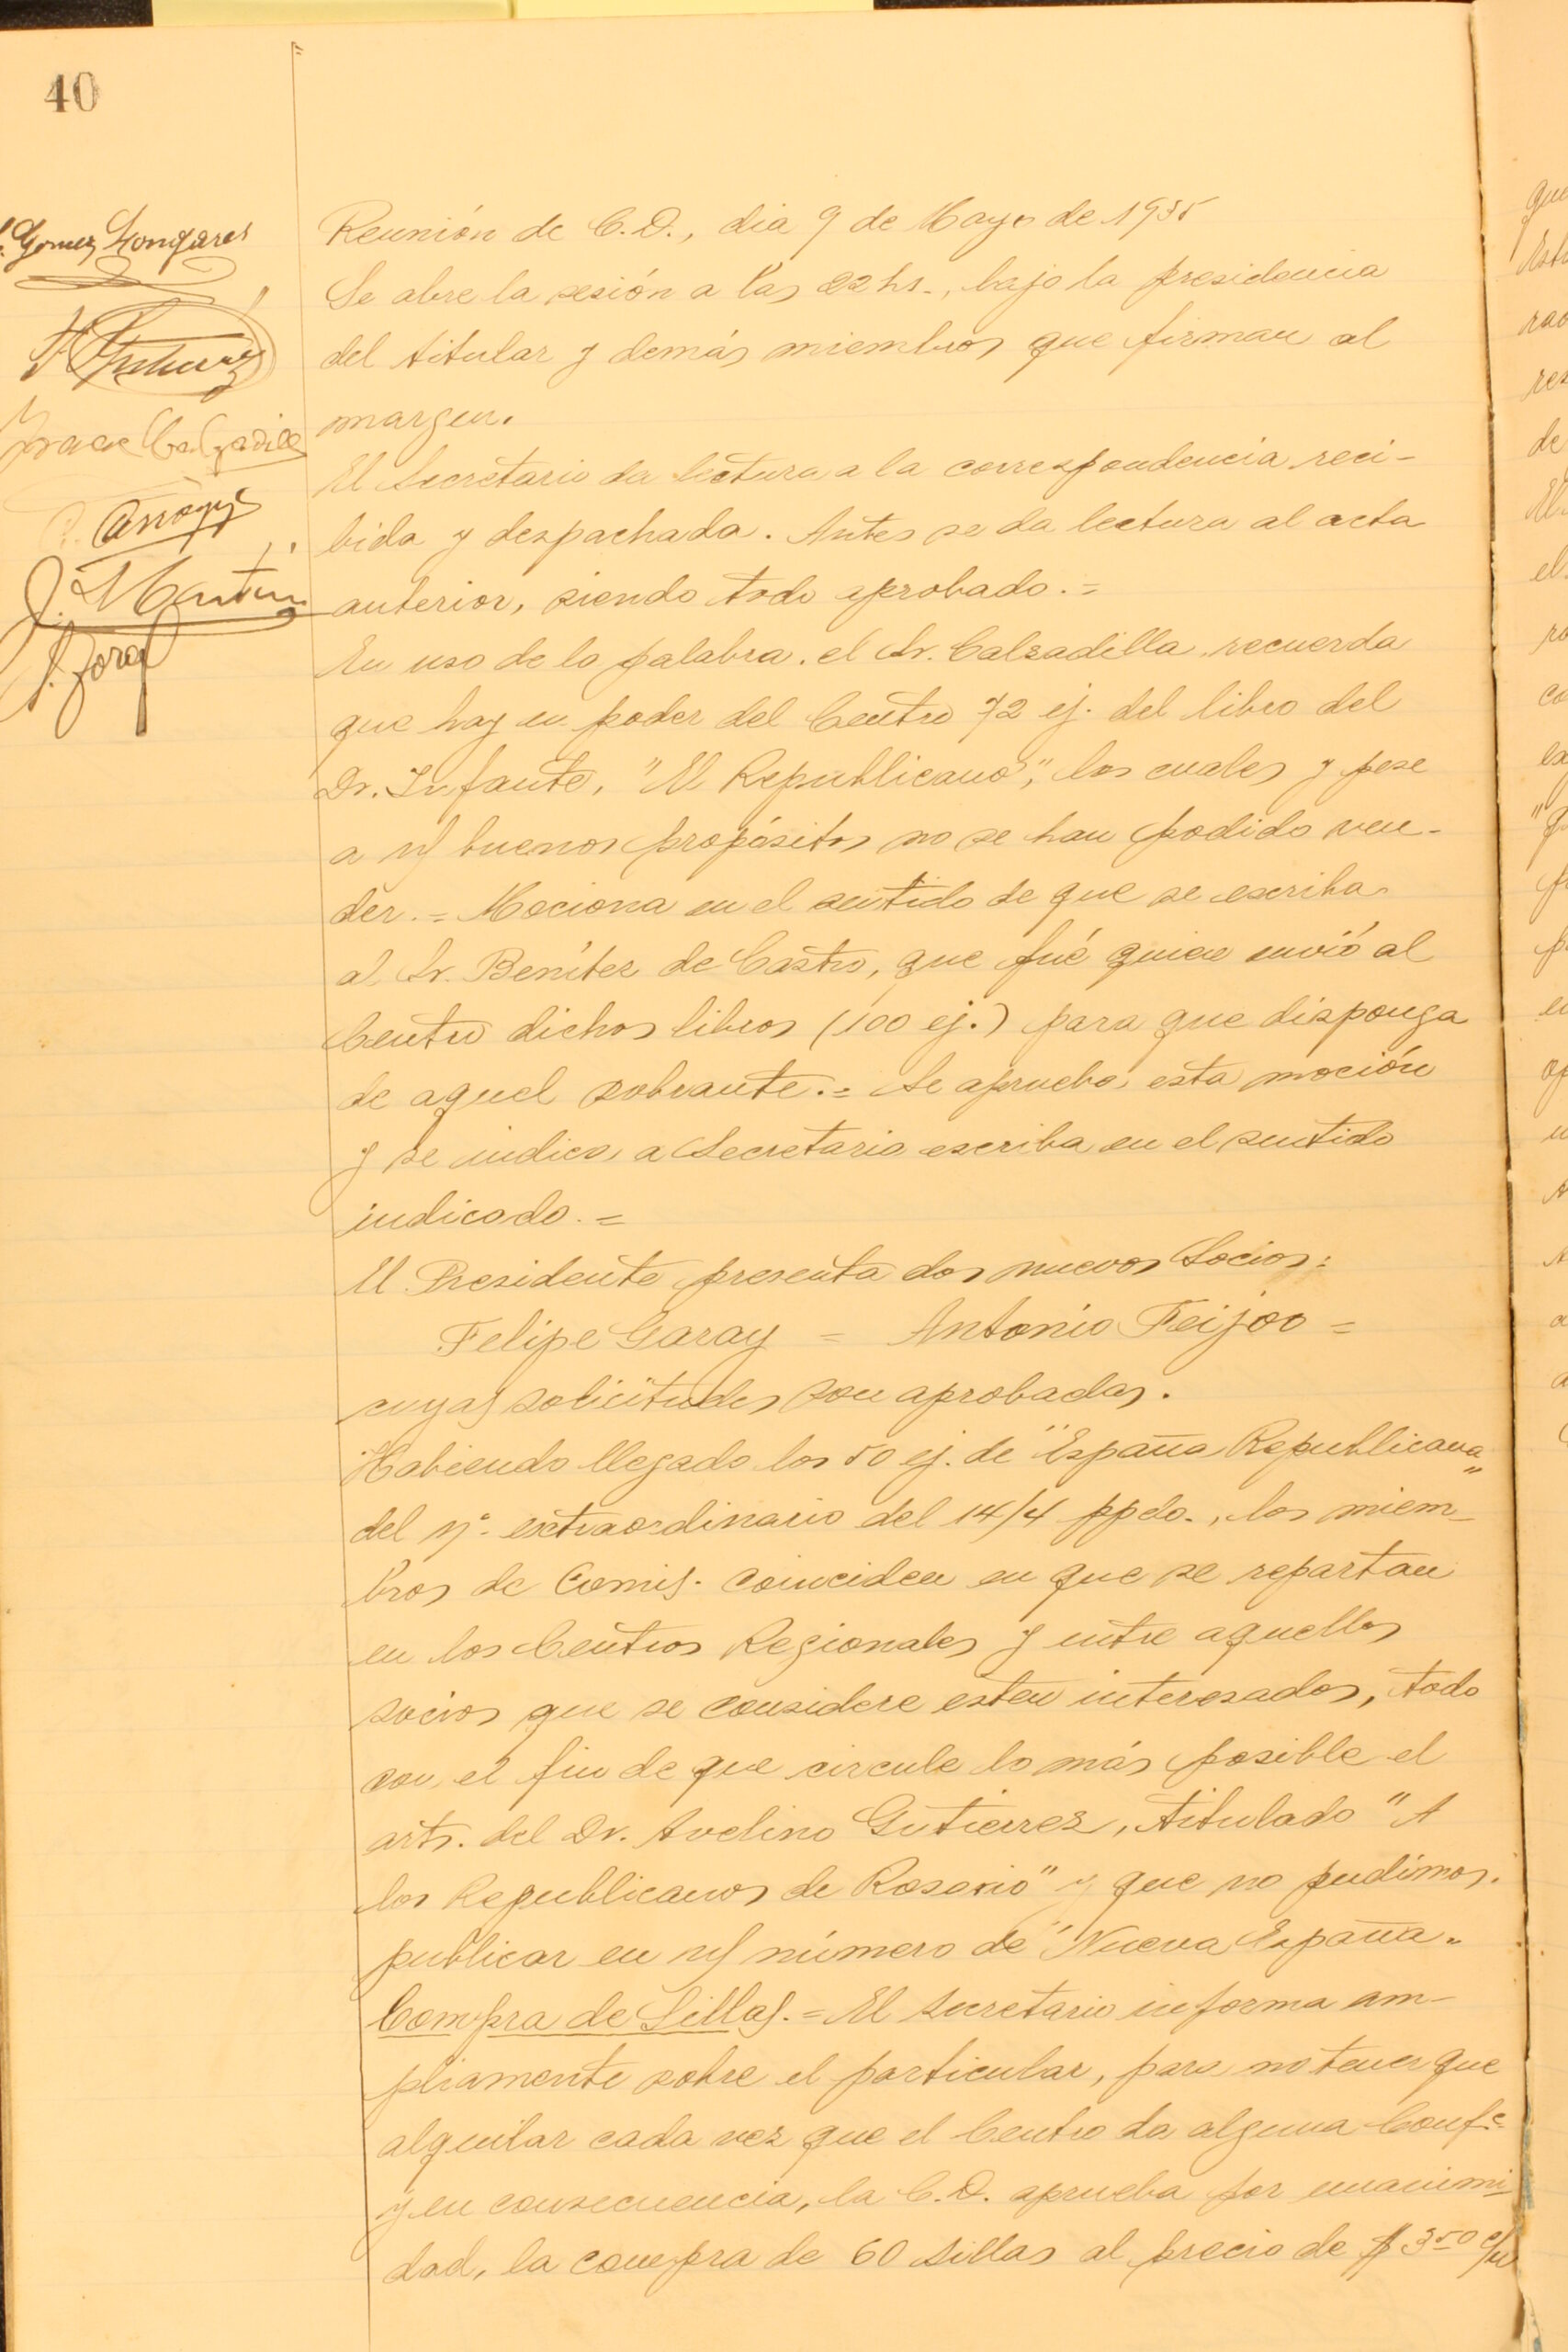 40
Gomez Longares
J. Martin
Reunión de C.D., dia 9 de Mayo de 1935
Se abre la sesión a las 22 hs., bajo la presidencia
del titular y demás miembros que firman al
margen.
El Secretario da lectura a la correspondencia reci-
bida y despachada. Antes se da lectura al acta
anterior, siendo todo aprobado.=
En uso de la palabra, el Sr. Calzadilla, recuerda
que hay en poder del Centro 72 ej. del libro del
Dr. Infante, "El Republicano", los cuales y pese
a n/ buenos propósitos no se han podido ven-
der.= Mociona en el sentido de que se escriba
al Sr. Benítez de Castro, que fué quien envió al
Centro dichos libros (100 ej.) para que disponga
de aquel sobrante.= Se aprueba esta moción
y se indica a Secretario escriba en el sentido
indicado.=
El Presidente presenta dos nuevos Socios:
Felipe Garay = Antonio Feijoo =
cuyas solicitudes son aprobadas.
Habiendo llegado los 50 ej. de "España Republicana"
del nº extraordinario del 14/4 ppdo., los miem-
bros de Comis. coinciden en que se repartan
en los Centros Regionales y entre aquellos
socios que se considere esten interesados, todo
con el fin de que circule lo más posible el
art. del Dr. Avelino Gutierrez, titulado "A
los Republicanos de Rosario" y que no pudimos
publicar en n/ número de "Nueva España"
Compra de Sillas.= El Secretario informa am-
pliamente sobre el particular, para no tener que
alquilar cada vez que el Centro da alguna Conf.ª
y en consecuencia, la C.D. aprueba por unanimi-
dad, la compra de 60 sillas al precio de $ 3.50 c/u